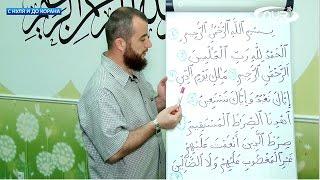 С НУЛЯ И ДО КОРАНА
بِسْمِ اللَّهِ الرَّحْمَنِ الرَّحِيمِ
الْحَمْدُ لِلَّهِ رَبِّ الْعَالَمِينَ
الرَّحْمَنِ الرَّحِيمِ مَالِكِ يَوْمِ الدِّينِ
إِيَّاكَ نَعْبُدُ وَإِيَّاكَ نَسْتَعِينُ
اهْدِنَا الصِّرَاطَ الْمُسْتَقِيمَ
صِرَاطَ الَّذِينَ أَنْعَمْتَ عَلَيْهِمْ
غَيْرِ الْمَغْضُوبِ عَلَيْهِمْ وَلَا الضَّالِّينَ